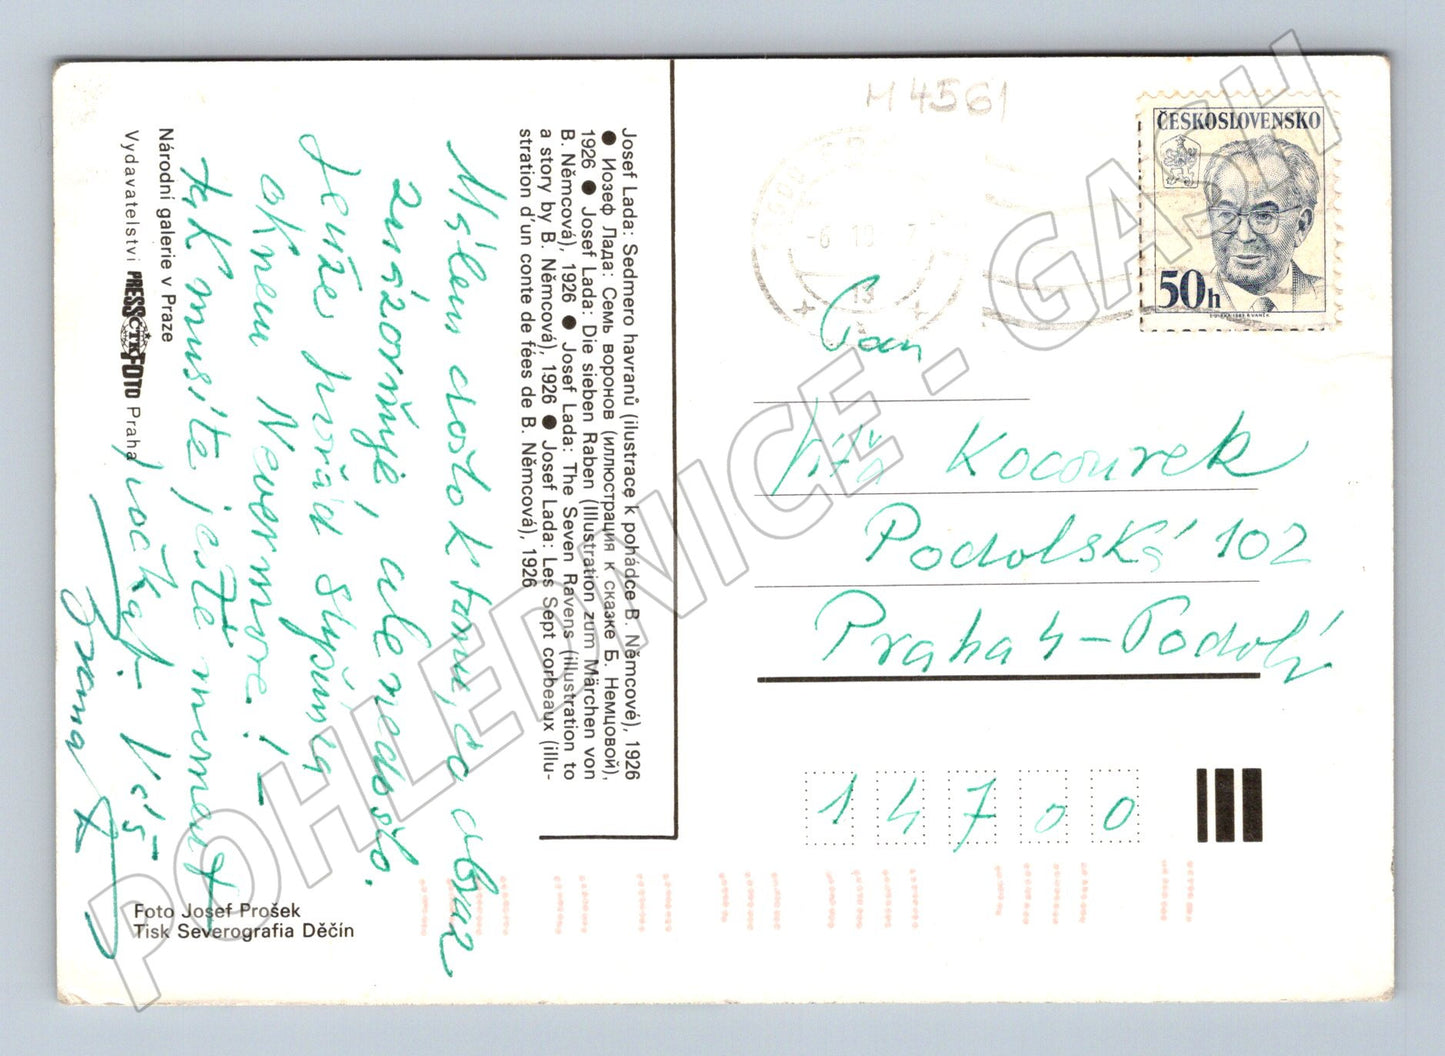 Josef Lada: Sedmero havranů (ilustrace k pohádce B. Němcové), 1926
● Иозеф Лада: Семь воронов (иллюстрация к сказке Б. Немцовой),
1926 ● Josef Lada: Die sieben Raben (Illustration zum Märchen von
B. Němcová), 1926 ● Josef Lada: The Seven Ravens (illustration to
a story by B. Němcová), 1926 ● Josef Lada: Les Sept corbeaux (illu-
stration d'un conte de fées de B. Němcová), 1926
došlo k tomu, co obraz
znázorňuje, ale nedošlo.
oknem Nevermore!
tak musíte ještě
Národní galerie v Praze
Vydavatelství PRESSČTKFOTO Praha
Foto Josef Prošek
Tisk Severografia Děčín
M 4561
ČESKOSLOVENSKO
50h
Pan
Kocourek
Podolská 102
Praha 4-Podolí
14700
POHLEDNICE - GASH